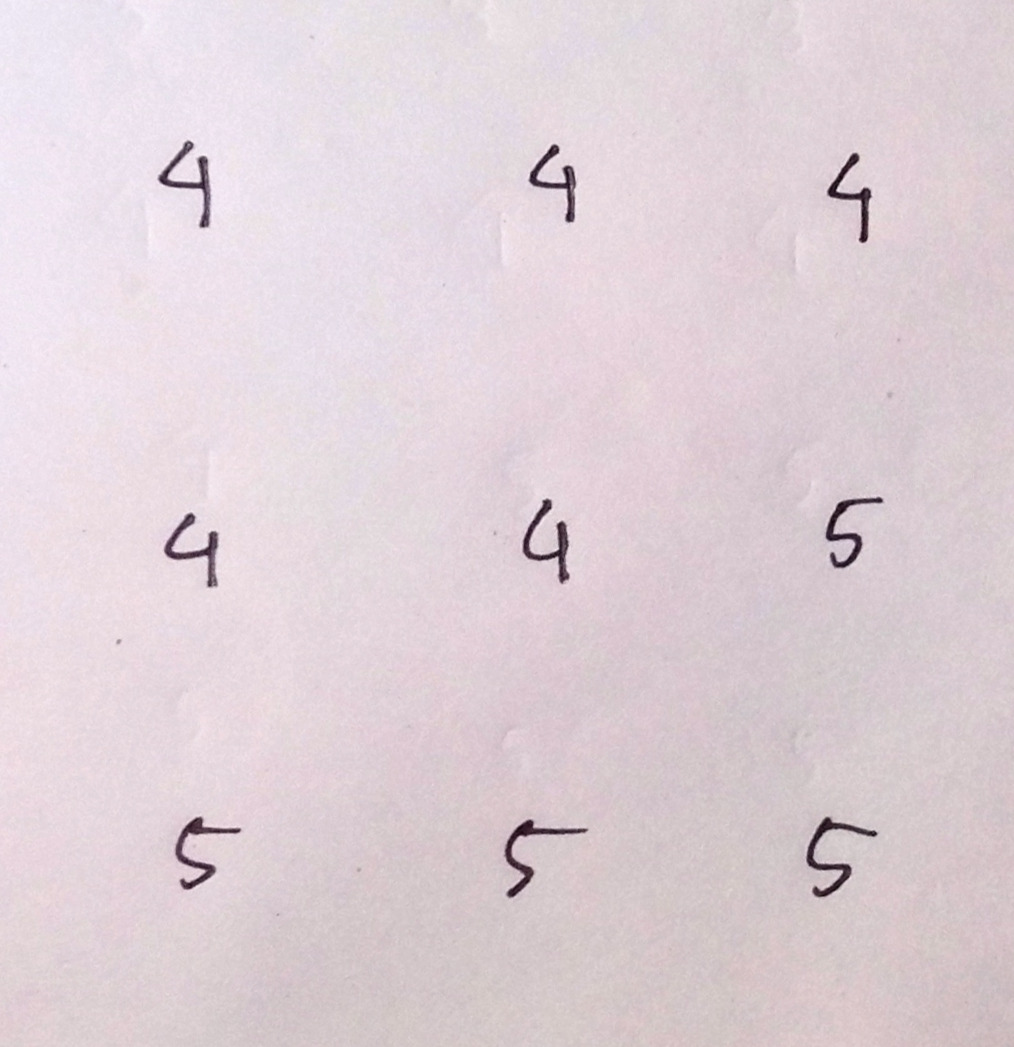 4 4 4
4 4 5
5 5 5